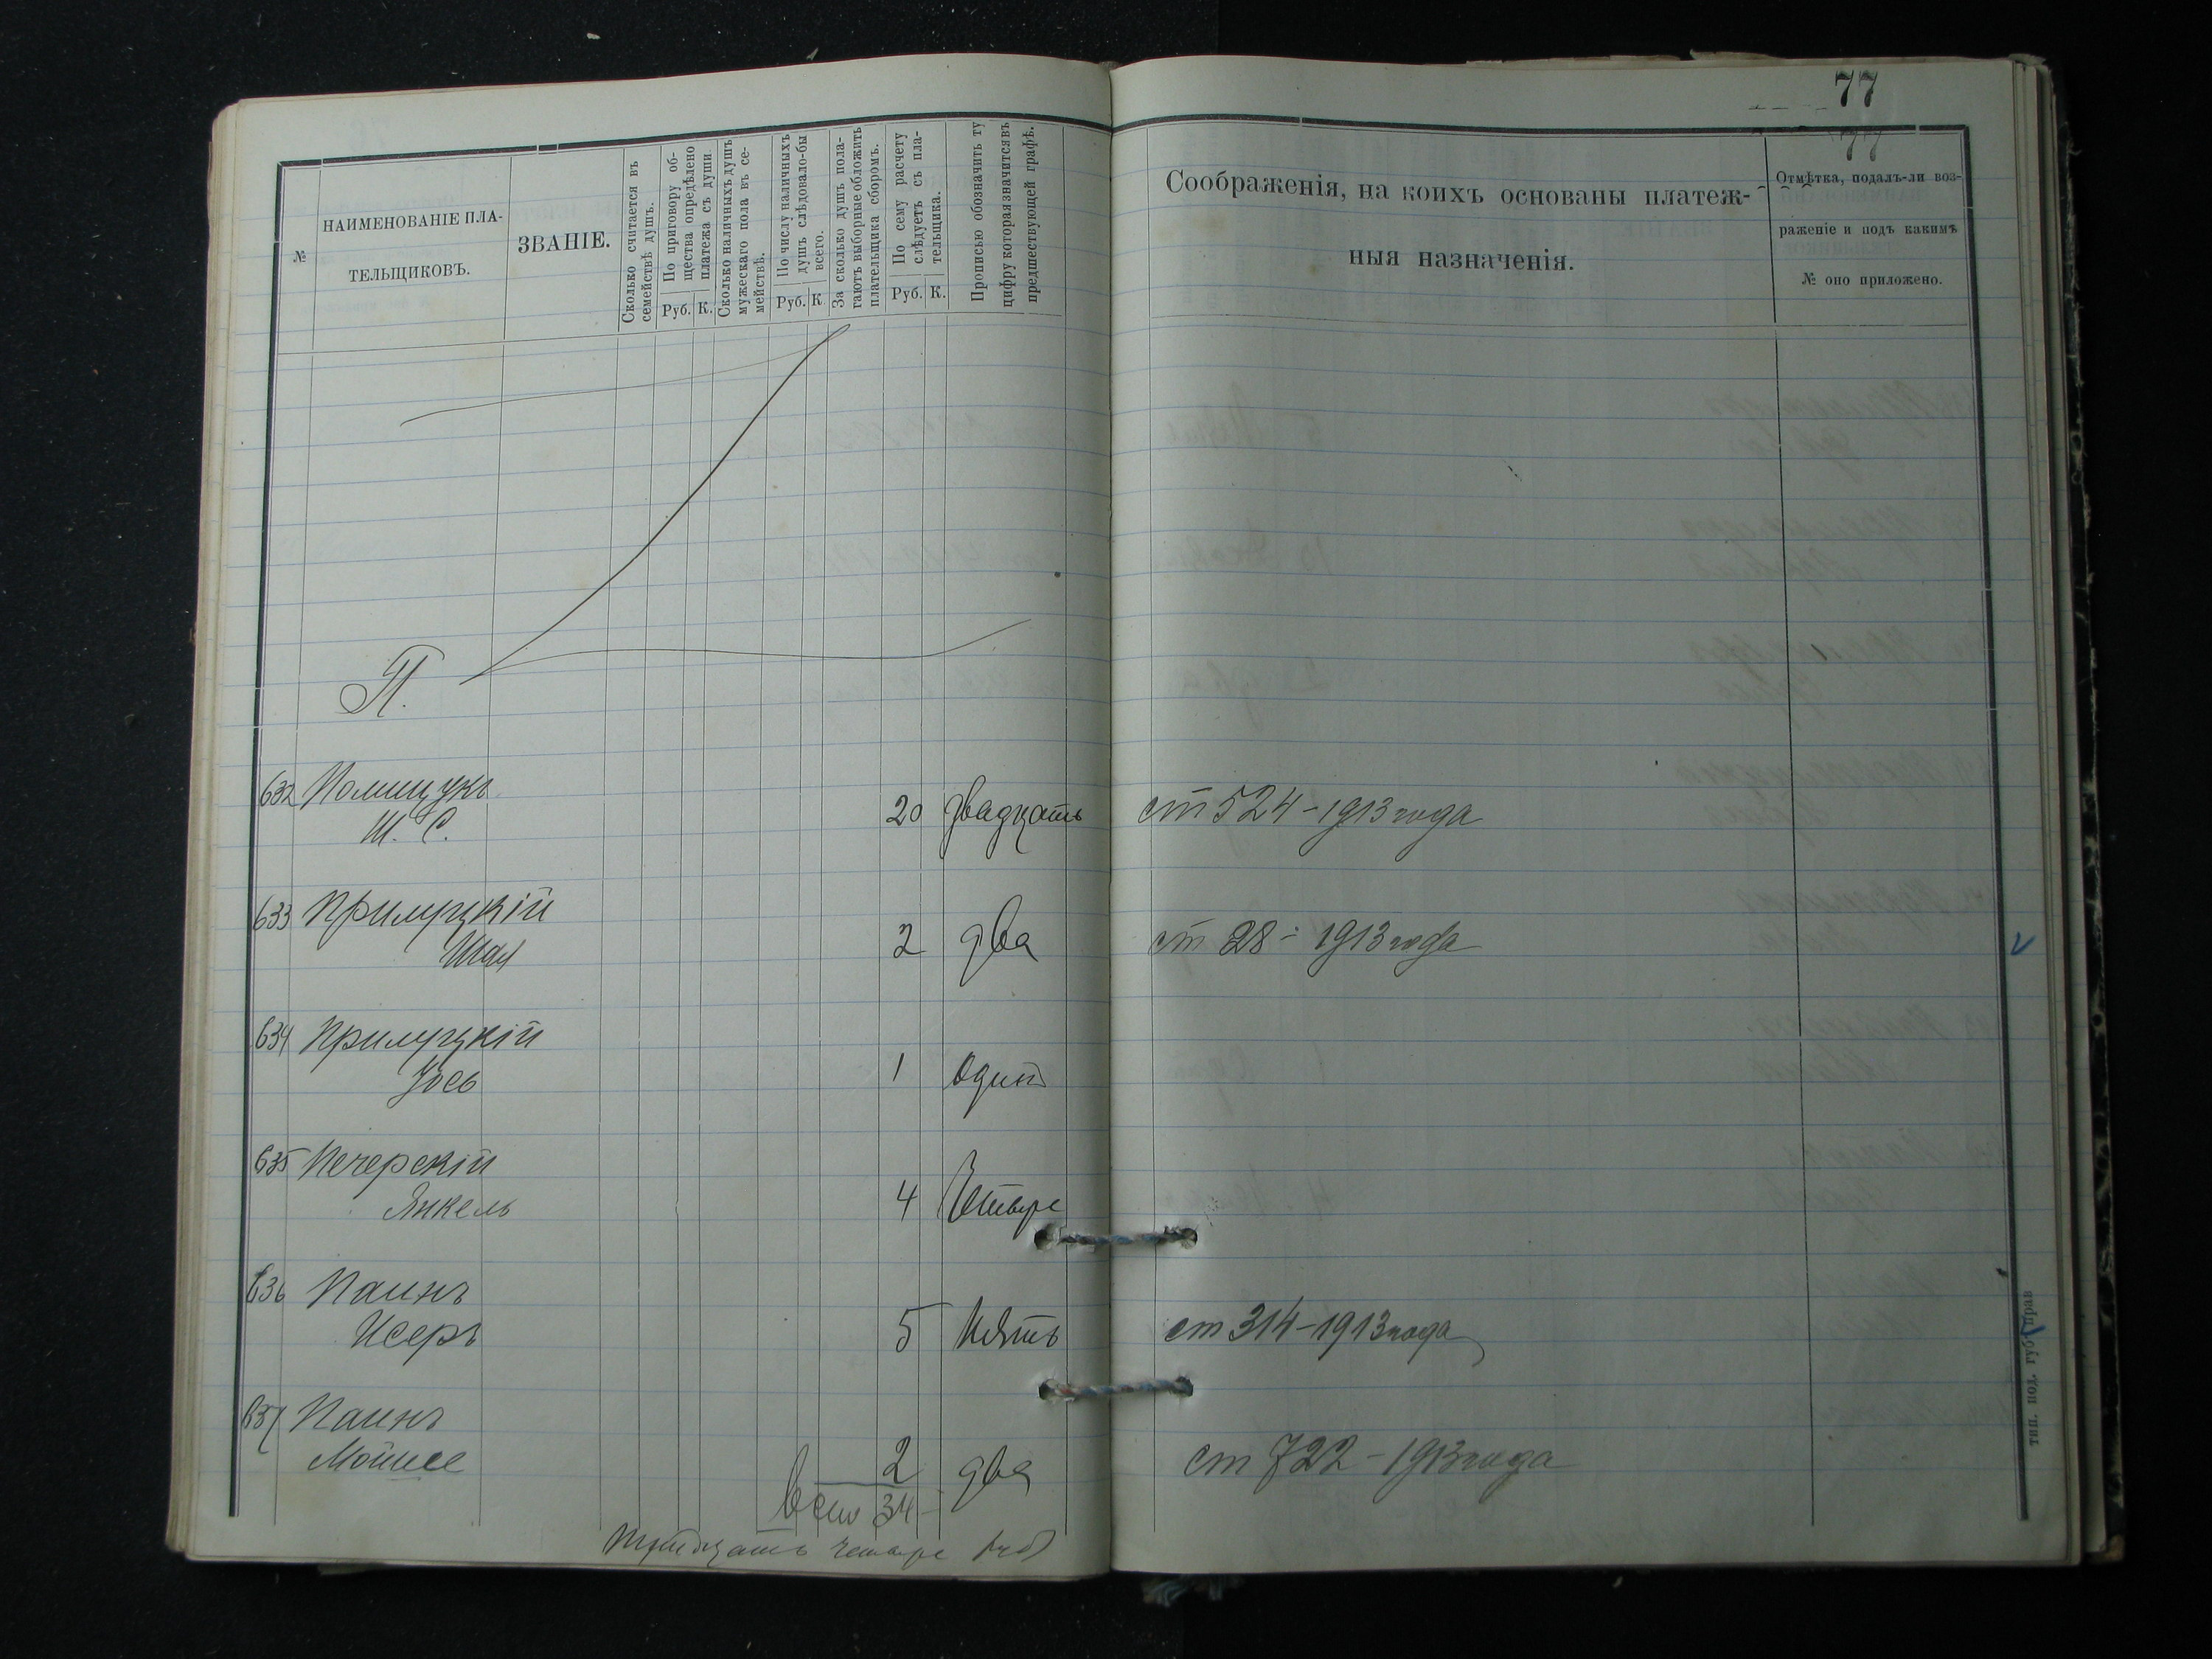 77
77
№
НАИМЕНОВАНІЕ ПЛА-
ТЕЛЬЩИКОВЪ.
ЗВАНІЕ.
Сколько считается въ
семействѣ душъ.
По приговору об-
щества опредѣлено
платежа съ души.
Руб. К.
Сколько наличныхъ душъ
мужескаго пола въ се-
мействѣ.
По числу наличныхъ
душъ слѣдовало-бы
всего.
Руб. К.
За сколько душъ пола-
гаютъ выборные обложить
плательщика сборомъ.
По сему расчету
слѣдуетъ съ пла-
тельщика.
Руб. К.
Прописью обозначить ту
цифру которая значится въ
предшествующей графѣ.
Соображенія, на коихъ основаны платеж-
ныя назначенія.
Отмѣтка, подалъ-ли воз-
раженіе и подъ какимъ
№ оно приложено.
П.
632 
Ш. С. 20 двадцать ст 524 - 1913 года
633 Прилуцкій
2 два ст 28 - 1913 года
634 Прилуцкій
Іось 1 один
635 Печерскій
Янкель 4 Четыре
636 Паинъ
Исеръ 5 Пять ст 314 - 1913 года
637 Паинъ
Мойше 2 два ст 722 - 1913 года
всего 34
Тридцать четыре руб
тип. под. губ. прав